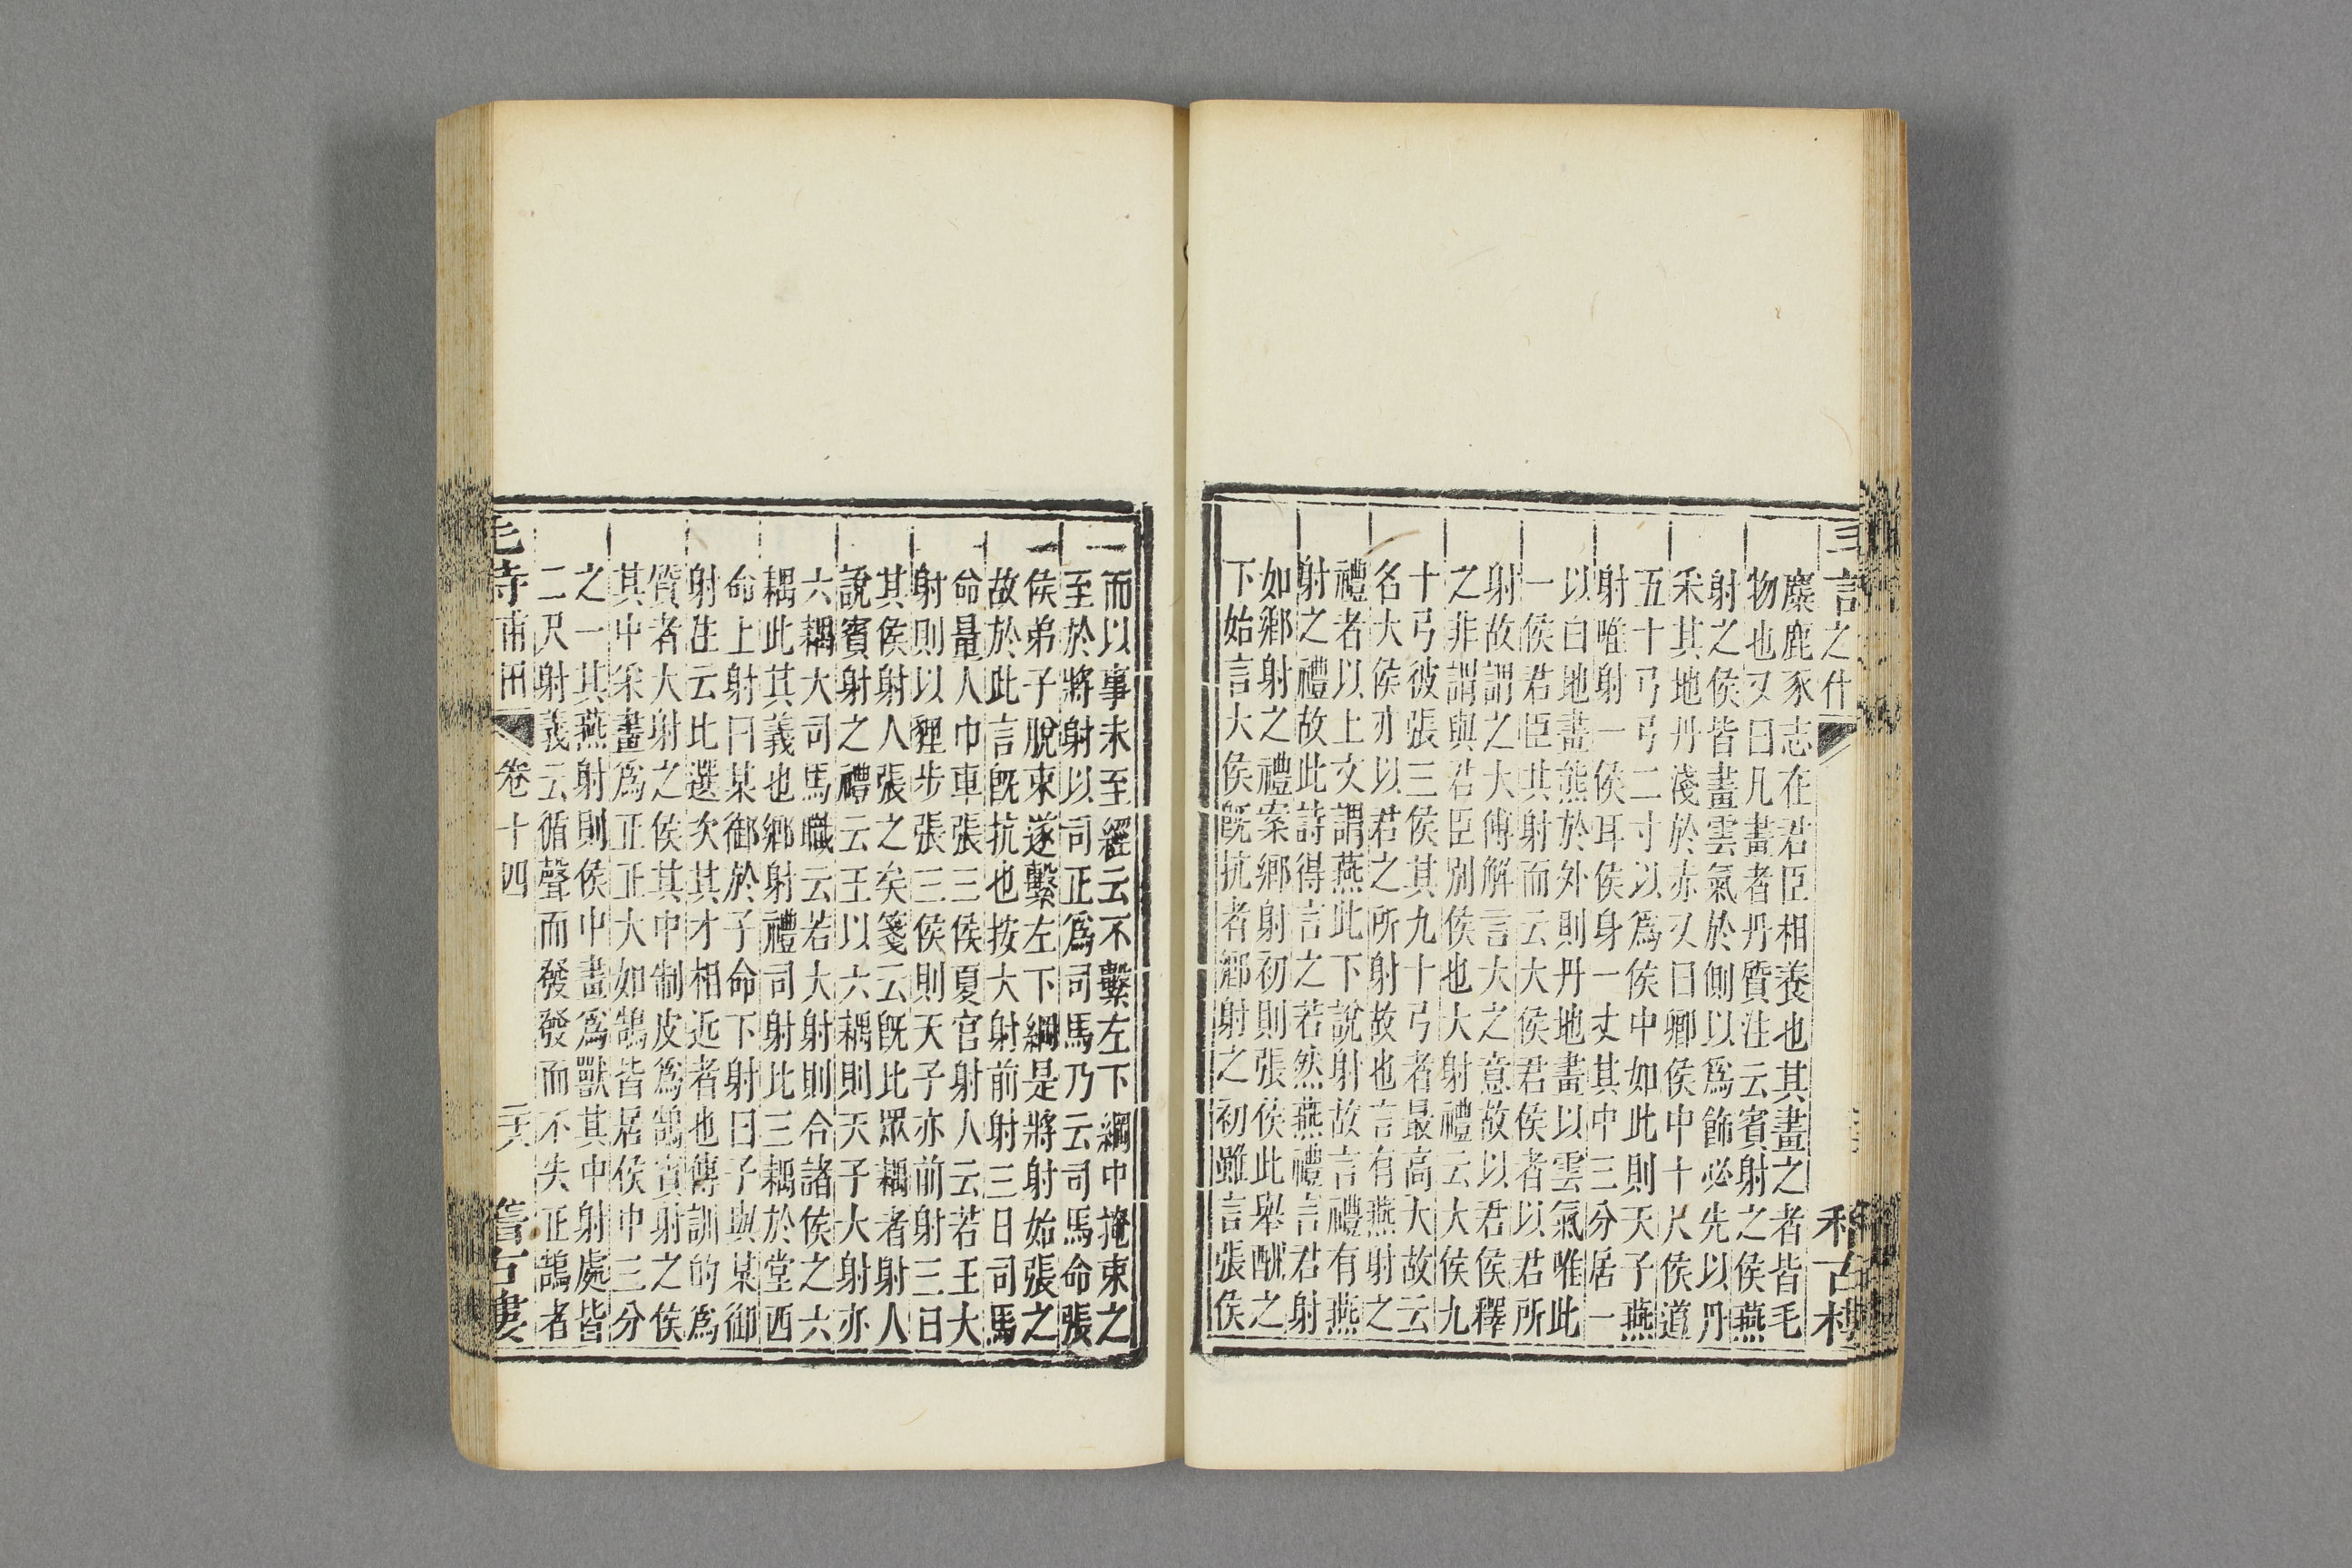 言之什
麋鹿豕志在君臣相養也其畫之者皆毛
物也又曰凡畫者丹質注云賓射之侯燕
射之侯皆畫雲氣於側以為飾必先以丹
采其地丹淺於赤又曰鄉侯中十尺侯道
五十弓弓二寸以為侯中如此則天子燕
射唯射一侯耳侯身一丈其中三分居一
以白地畫熊於外則丹地畫以雲氣唯此
一侯君臣共射而云大侯君侯者以君所
射故謂之大傳解言大之意故以君侯釋
之非謂與君臣別侯也大射禮云大侯九
十弓彼張三侯其九十弓者最高大故云
名大侯亦以君之所射故也言有燕射之
禮者以上文謂燕此下說射故言禮有燕
射之禮故此詩得言之若然燕禮言君射
如鄉射之禮案鄉射初則張侯此舉酬之
下始言大侯旣抗者鄉射之初雖言張侯
而以事未至經云不繫左下綱中掩束之
至於將射以司正爲司馬乃云司馬命張
侯弟子脫束遂繫左下綱是將射始張之
故於此言旣抗也按大射前射三日司馬
命量人巾車張三侯夏官射人云若王大
射則以貍步張三侯則天子亦前射三日
其侯射人張之矣箋云旣比眾耦者射人
說賓射之禮云王以六耦則天子大射亦
六耦大司馬職云若大射則合諸侯之六
耦此其義也鄉射禮司射比三耦於堂西
命上射曰某御於子命下射曰子與某御
射注云比選次其才相近者也傳訓的爲
質者大射之侯其中制皮爲鵠賓射之侯
其中采畫爲正正大如鵠皆居侯中三分
之一其燕射則侯中畫爲獸其中射處皆
二尺射義云循聲而發發而不失正鵠者
毛詩甫田 卷十四